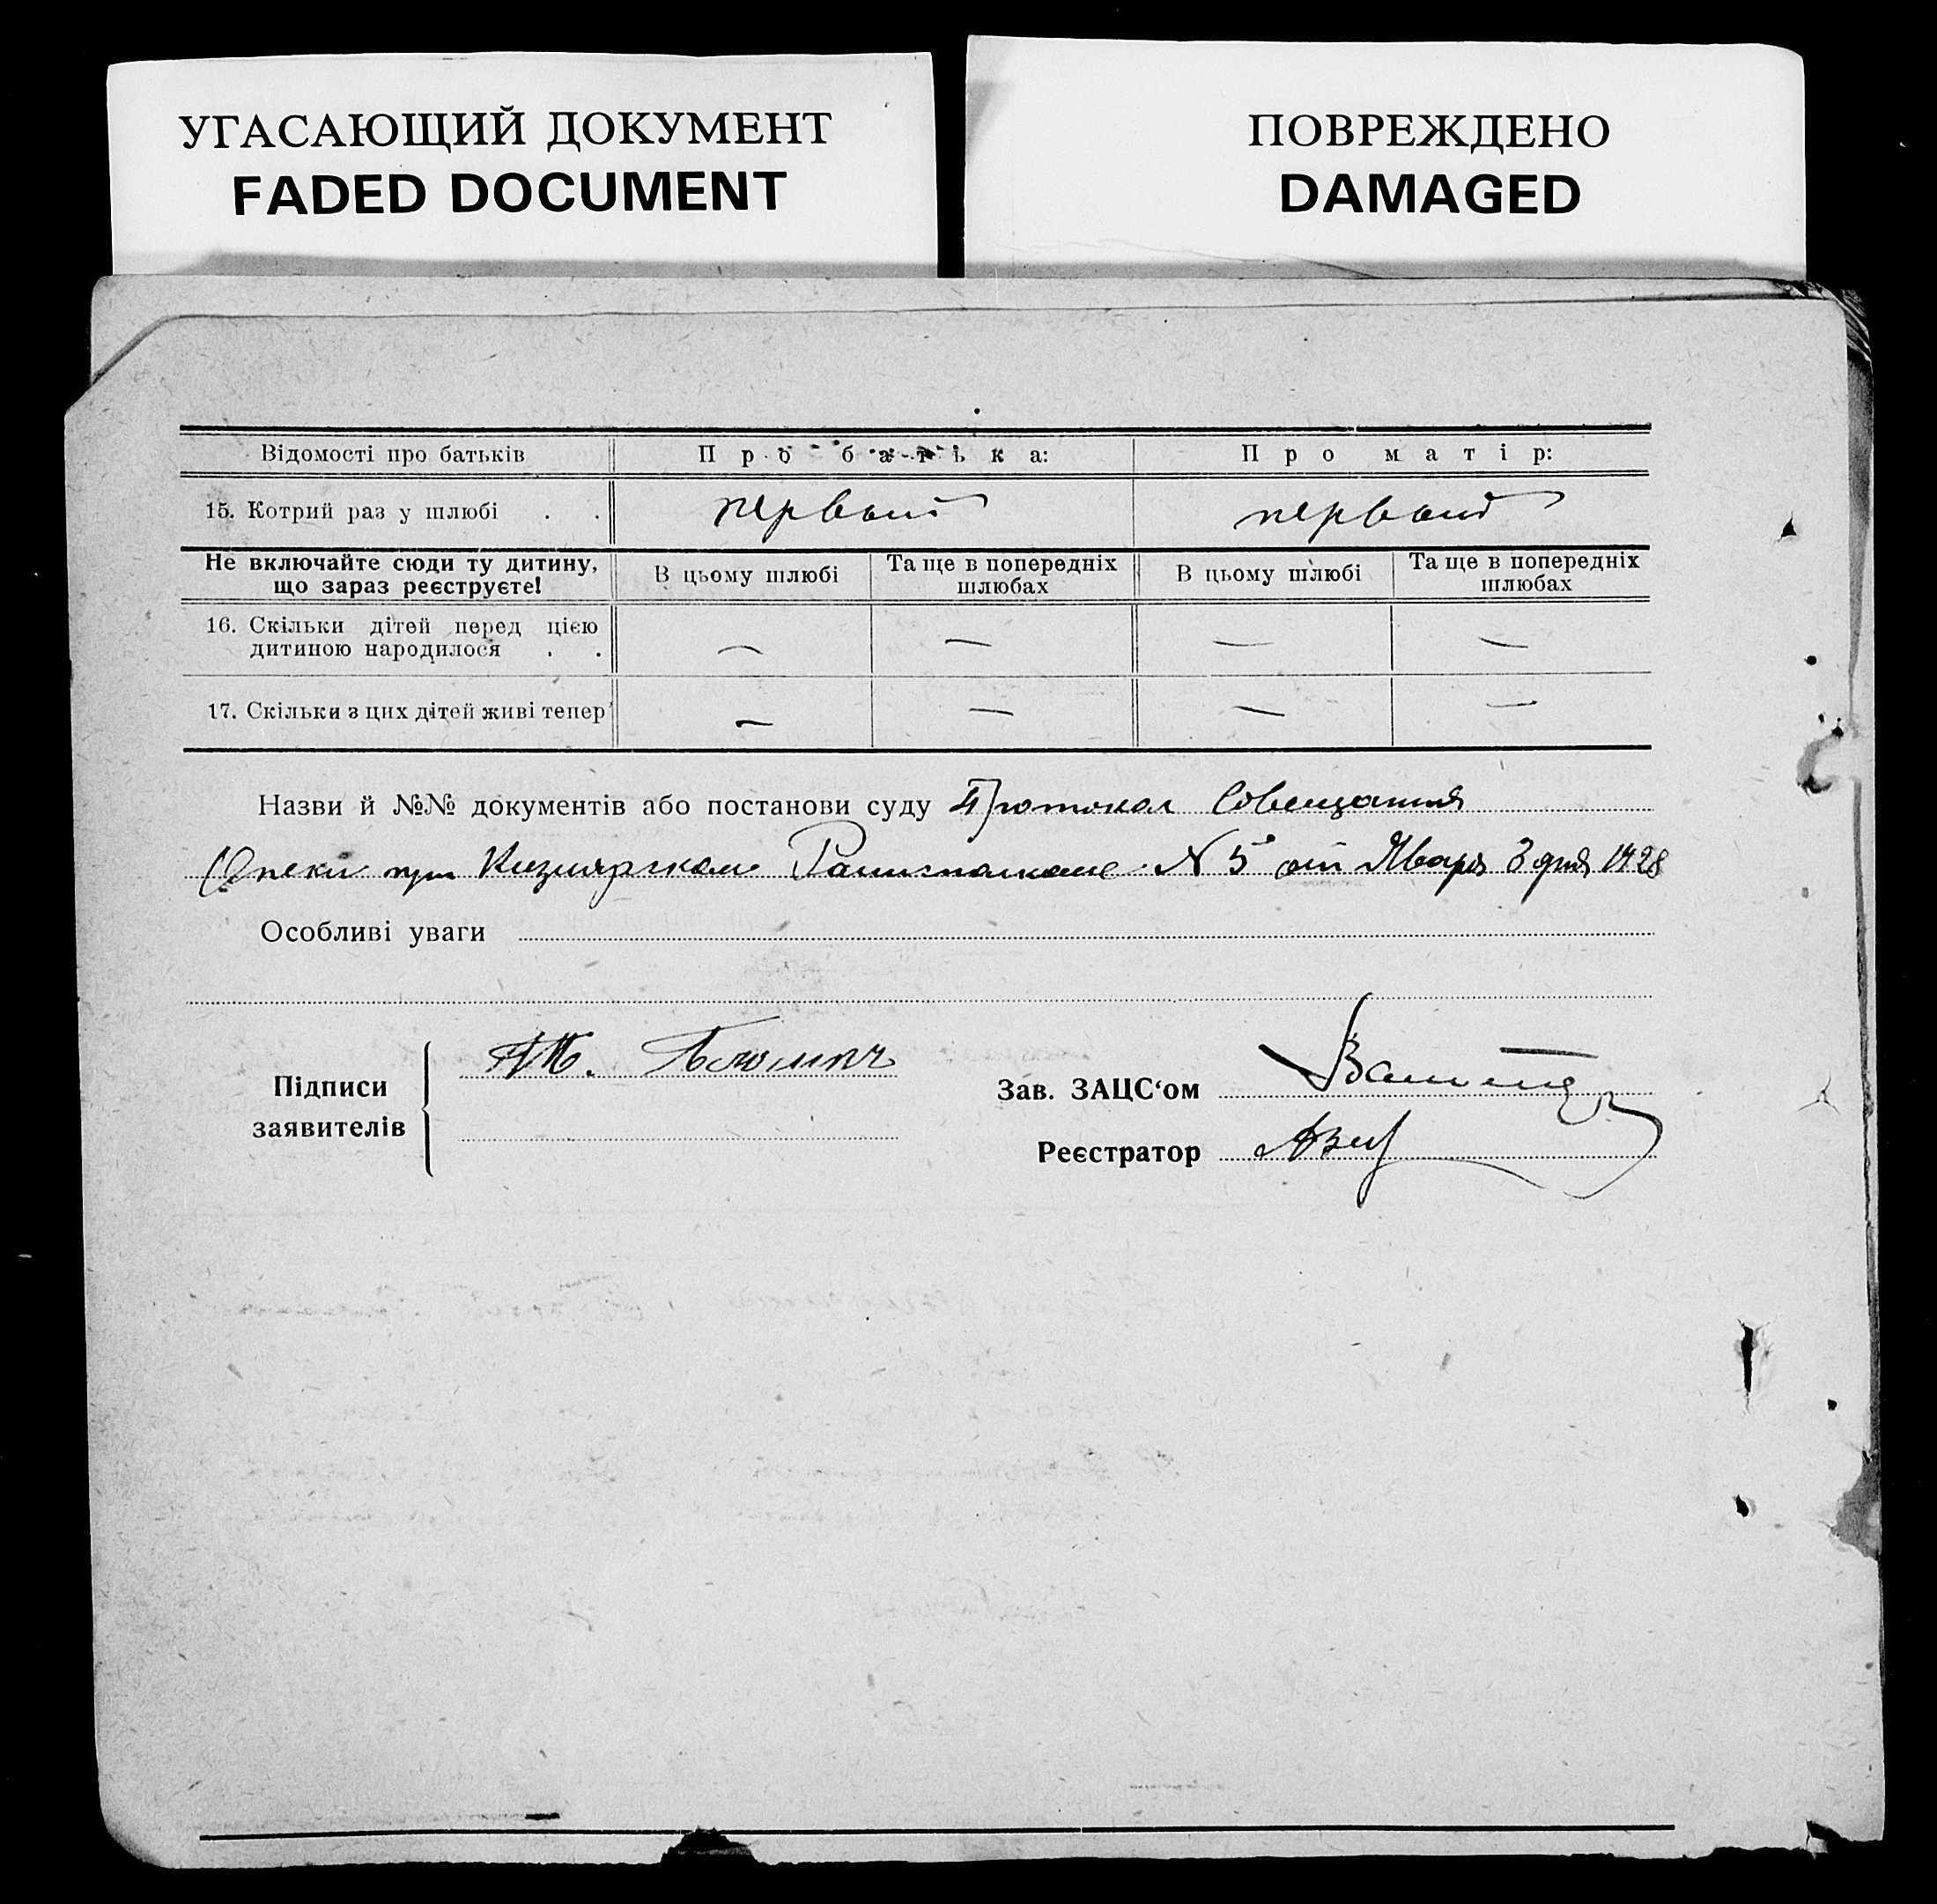 УГАСАЮЩИЙ ДОКУМЕНТ
FADED DOCUMENT
ПОВРЕЖДЕНО
DAMAGED
Відомості про батьків Про батька: Про матір:
15. Котрий раз у шлюбі . . первый первый
Не включайте сюди ту дитину, що зараз реєструєте! В цьому шлюбі Та ще в попередніх шлюбах В цьому шлюбі Та ще в попередніх шлюбах
16. Скільки дітей перед цією
дитиною народилося . . — — — —
17. Скільки з цих дітей живі тепер — — — —
Назви й №№ документів або постанови суду Протокол Совещания
Опеки при Кизиярском N 5 от Январ 3 дня 1928
Особливі уваги
Підписи
заявителів
Зав. ЗАЦС‘ом
Реєстратор